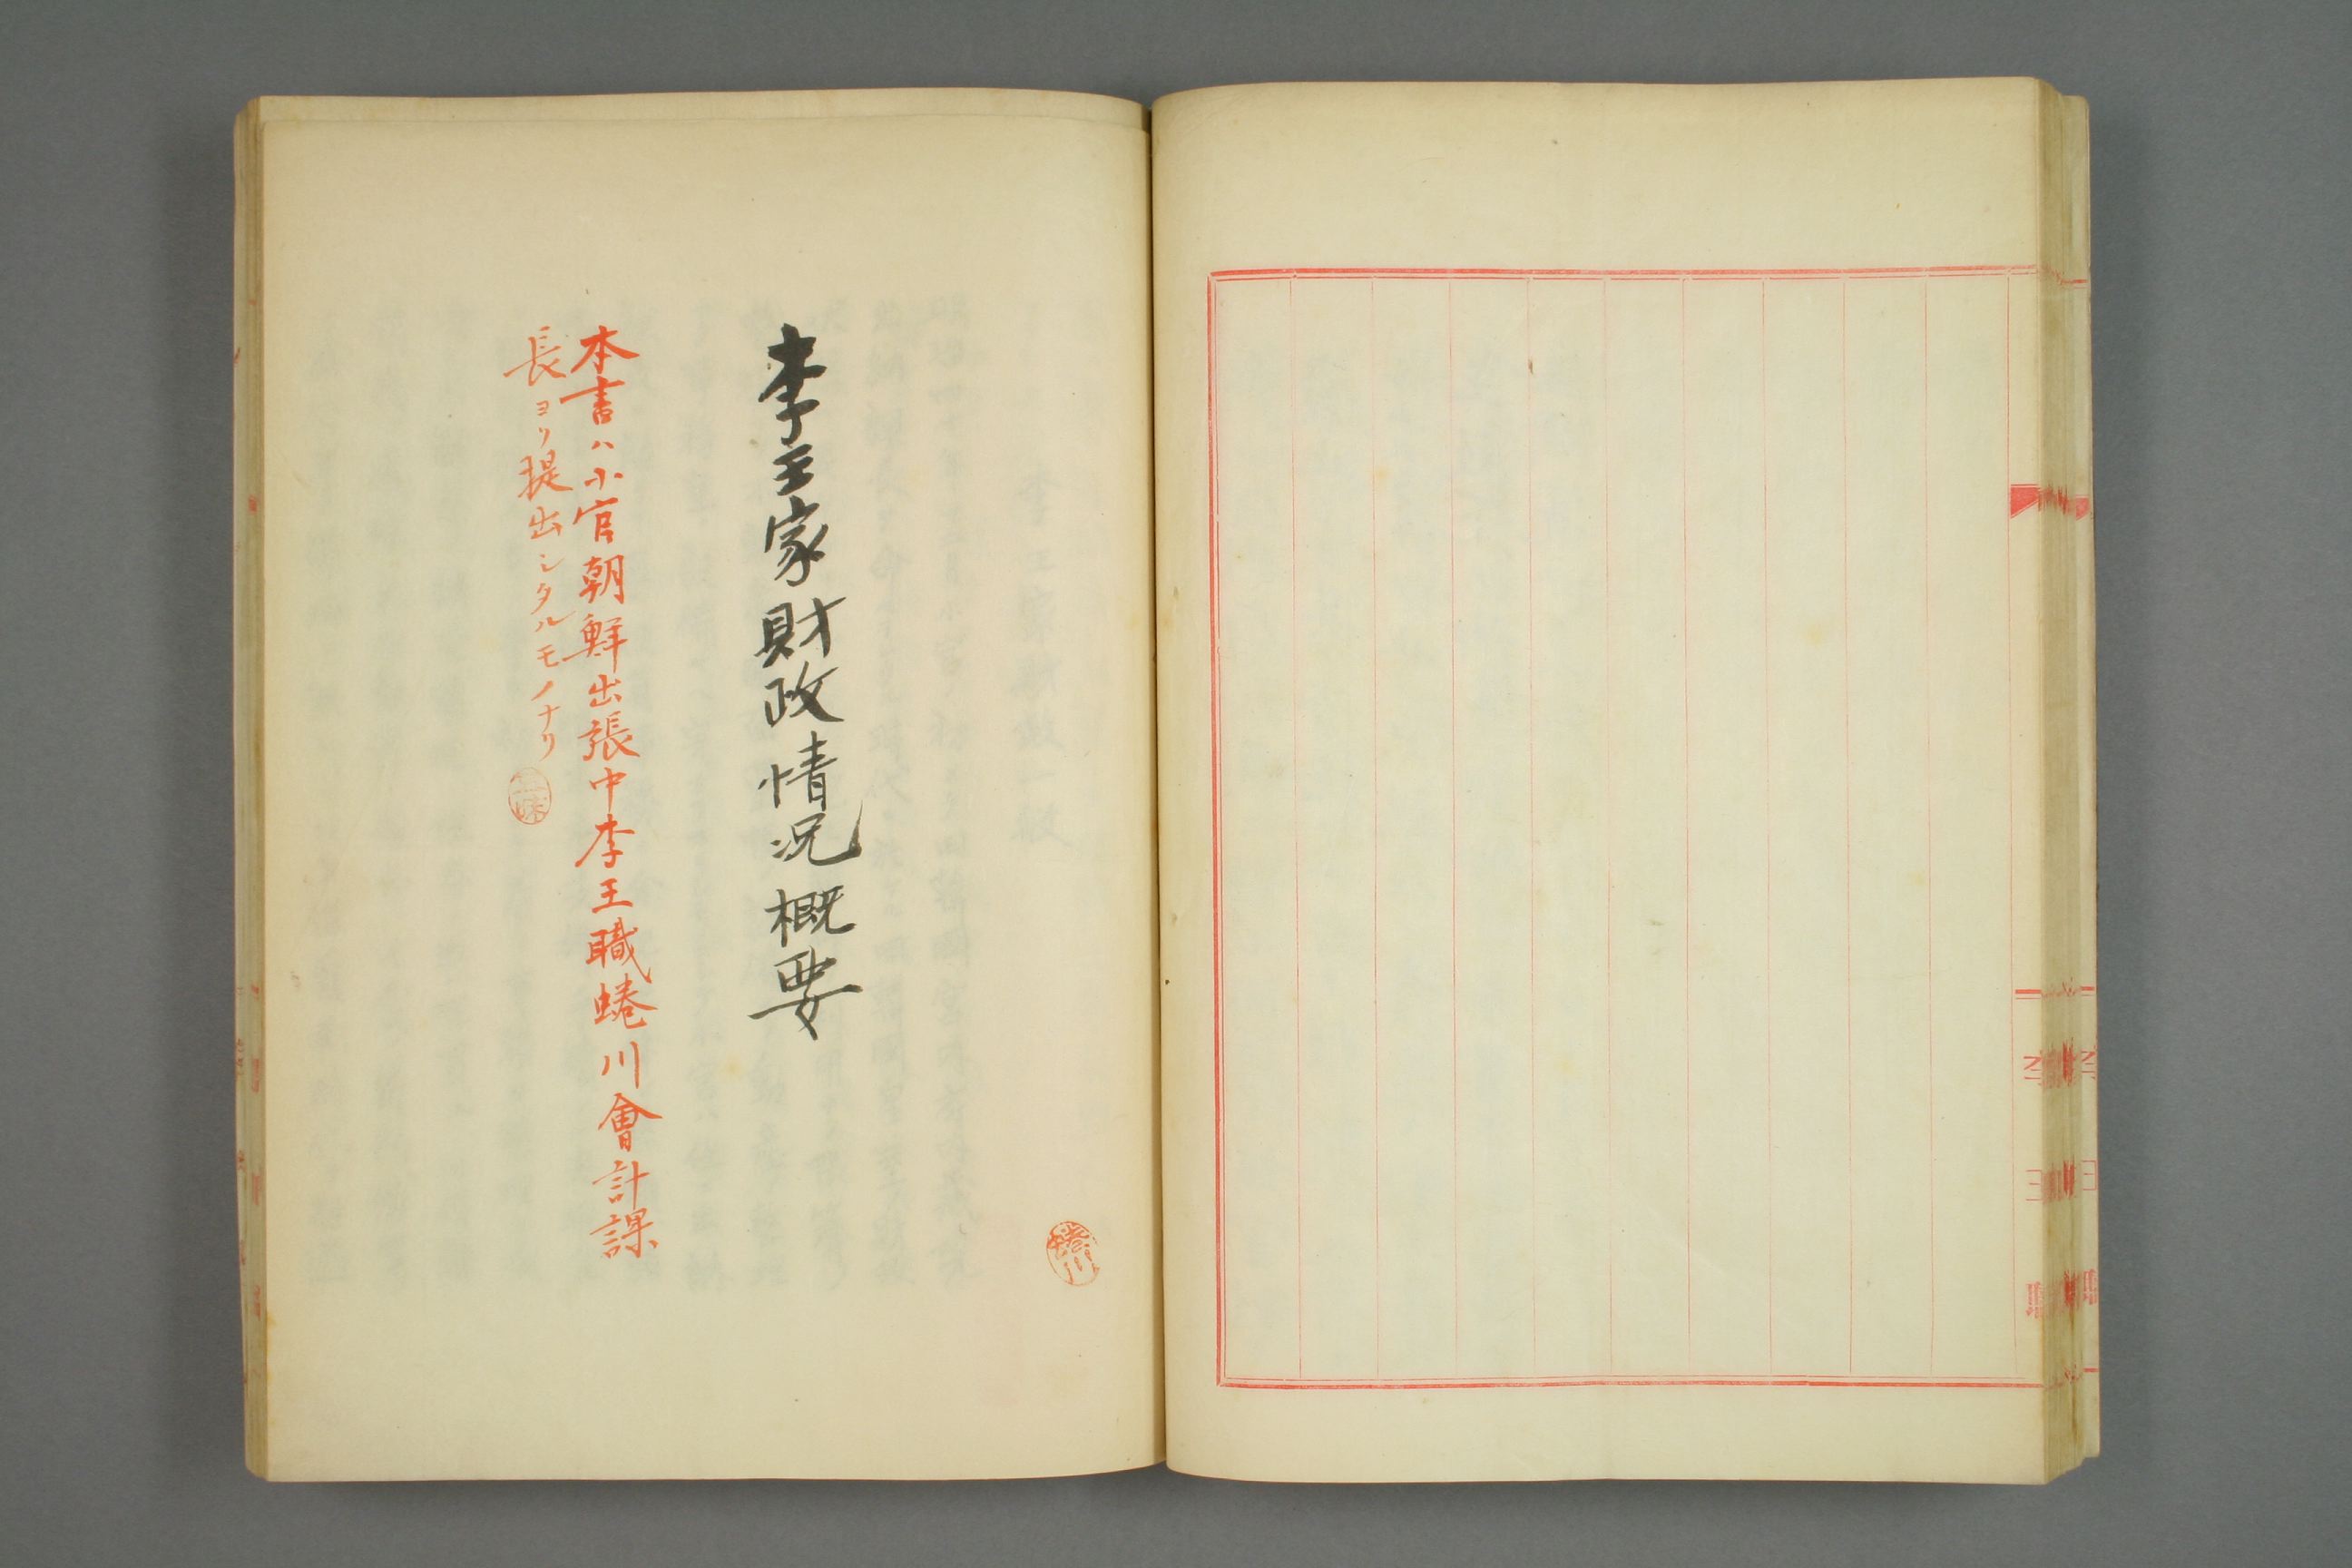 李王家財政情況概要
本書ハ小官朝鮮出張中李王職蜷川會計課
長ヨリ提出シタルモノナリ
蜷川
李王職